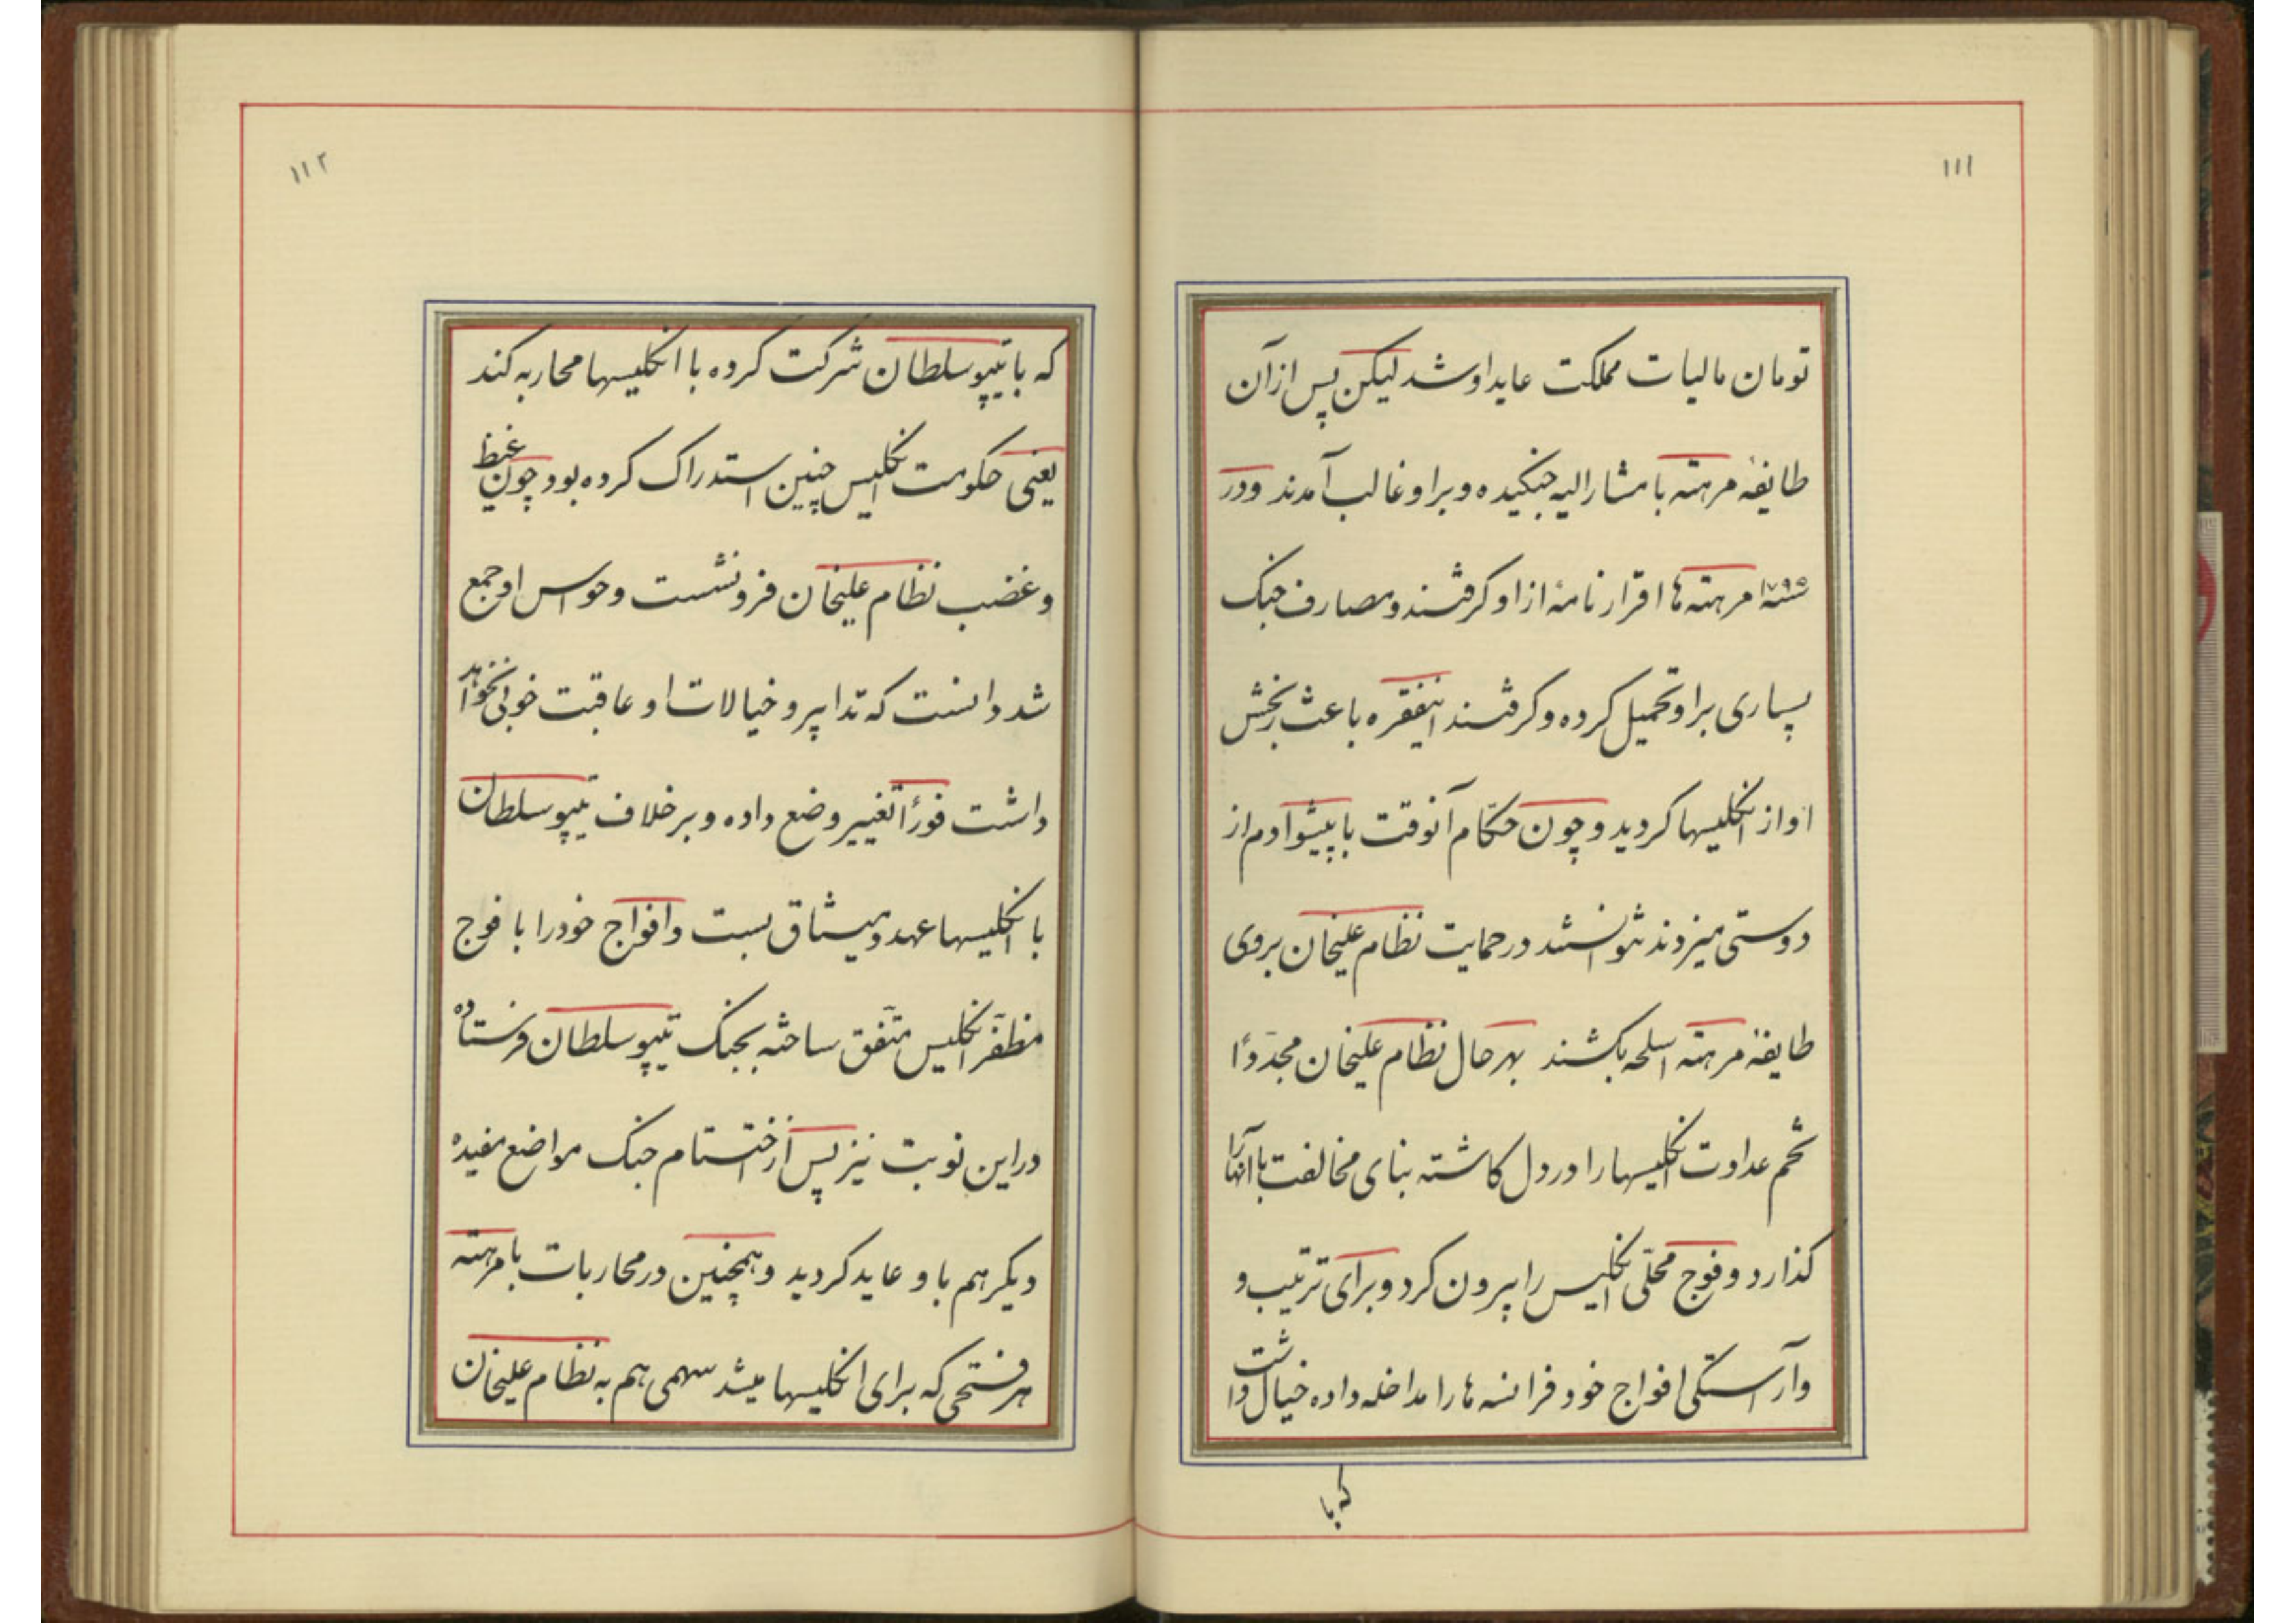 ۱۱۱
تومان مالیات مملکت عاید او شد لیکن پس از آن
طایفهٔ مرهته با مشارالیه جنکیده و براو غالب آمدند و در
سنه ۱۷۹۵ مرهته ها اقرار نامهٔ از او کرفتند و مصارف جنک
بسیاری براو تحمیل کرده و کرفتند اینفقره باعث رنجش
او از انکلیسها کردید و چون حکّام آنوقت با پیشوا دم از
دوستی میزدند نتوانستند در حمایت نظام علیخان بروی
طایفهٔ مرهته اسلحه بکشند بهر حال نظام علیخان مجدّدًا
تخم عداوت انکلیسها را در دل کاشته بنای مخالفت با آنها را
کذارد و فوج محلّی انکلیس را بیرون کرد و برای ترتیب و
و آراستکی افواج خود فرانسه ها را مداخله داده خیال داشت
که با
۱۱۲
که با تیپو سلطان شرکت کرده با انکلیسها محاربه کند
یعنی حکومت انکلیس چنین استدراک کرده بود چون غیظ
و غضب نظام علیخان فرو نشست و حواس او جمع
شد دانست که تدابیر و خیالات او عاقبت خوبی نخواهد
داشت فورًا تغییر وضع داده و بر خلاف تیپو سلطان
با انکلیسها عهد و میثاق بست و افواج خود را با فوج
مظفّر انکلیس متّفق ساخته بجنک تیپو سلطان فرستاده
در این نوبت نیز پس از اختتام جنک مواضع مفیدهٔ
دیکر هم باو عاید کردید و همچنین در محاربات با مرهته
هر فتحی که برای انکلیسها میشد سهمی هم به نظام علیخان